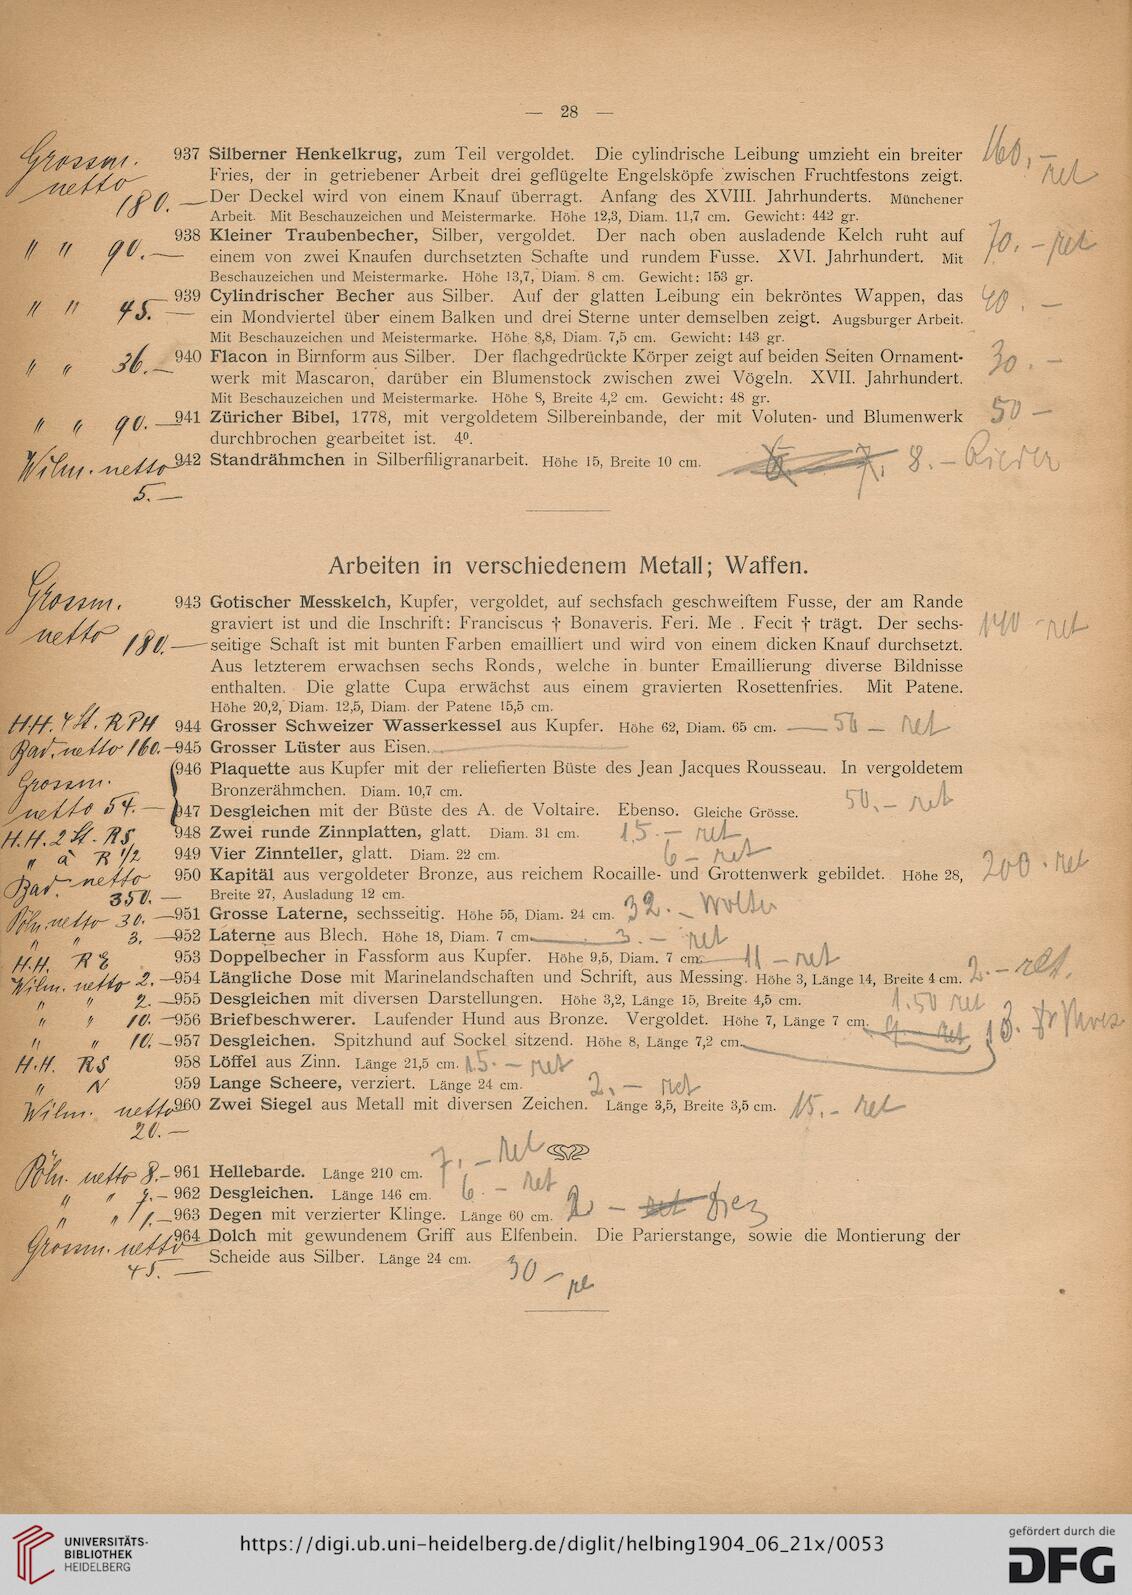 — 28 —
Grossm.
netto
180.—
937 Silberner Henkelkrug, zum Teil vergoldet. Die cylindrische Leibung umzieht ein breiter
Fries, der in getriebener Arbeit drei geflügelte Engelsköpfe zwischen Fruchtfestons zeigt.
Der Deckel wird von einem Knauf überragt. Anfang des XVIII. Jahrhunderts. Münchener
Arbeit. Mit Beschauzeichen und Meistermarke. Höhe 12,3, Diam. 11,7 cm. Gewicht: 442 gr.
160,— ret
" " 90.—
938 Kleiner Traubenbecher, Silber, vergoldet. Der nach oben ausladende Kelch ruht auf
einem von zwei Knaufen durchsetzten Schafte und rundem Fusse. XVI. Jahrhundert. Mit
Beschauzeichen und Meistermarke. Höhe 13,7, Diam. 8 cm. Gewicht: 153 gr.
70.— ret
" " 45.—
939 Cylindrischer Becher aus Silber. Auf der glatten Leibung ein bekröntes Wappen, das
ein Mondviertel über einem Balken und drei Sterne unter demselben zeigt. Augsburger Arbeit.
Mit Beschauzeichen und Meistermarke. Höhe 8,8, Diam. 7,5 cm. Gewicht: 143 gr.
40.—
" " 36.—
940 Flacon in Birnform aus Silber. Der flachgedrückte Körper zeigt auf beiden Seiten Ornament-
werk mit Mascaron, darüber ein Blumenstock zwischen zwei Vögeln. XVII. Jahrhundert.
Mit Beschauzeichen und Meistermarke. Höhe 8, Breite 4,2 cm. Gewicht: 48 gr.
30.—
" " 90.—
941 Züricher Bibel, 1778, mit vergoldetem Silbereinbande, der mit Voluten- und Blumenwerk
durchbrochen gearbeitet ist. 4⁰.
50 —
Wilm. netto
5.—
942 Standrähmchen in Silberfiligranarbeit. Höhe 15, Breite 10 cm.
8.— Rieder
Arbeiten in verschiedenem Metall; Waffen.
Grossm.
netto 180.—
943 Gotischer Messkelch, Kupfer, vergoldet, auf sechsfach geschweiftem Fusse, der am Rande
graviert ist und die Inschrift: Franciscus † Bonaveris. Feri. Me . Fecit † trägt. Der sechs-
seitige Schaft ist mit bunten Farben emailliert und wird von einem dicken Knauf durchsetzt.
Aus letzterem erwachsen sechs Ronds, welche in bunter Emaillierung diverse Bildnisse
enthalten. Die glatte Cupa erwächst aus einem gravierten Rosettenfries. Mit Patene.
Höhe 20,2, Diam. 12,5, Diam. der Patene 15,5 cm.
140 — ret
944 Grosser Schweizer Wasserkessel aus Kupfer. Höhe 62, Diam. 65 cm. — 50 — ret
Bad. netto 160.—
945 Grosser Lüster aus Eisen.
Grossm.
netto 54.—
946 Plaquette aus Kupfer mit der reliefierten Büste des Jean Jacques Rousseau. In vergoldetem
Bronzerähmchen. Diam. 10,7 cm.
947 Desgleichen mit der Büste des A. de Voltaire. Ebenso. Gleiche Grösse.
50.— ret
H.H. 2 St. RS
948 Zwei runde Zinnplatten, glatt. Diam. 31 cm. 15.— ret
" à R 1/2
949 Vier Zinnteller, glatt. Diam. 22 cm. 6 — ret
Bad. netto
350.—
950 Kapitäl aus vergoldeter Bronze, aus reichem Rocaille- und Grottenwerk gebildet. Höhe 28,
Breite 27, Ausladung 12 cm.
200. ret
Pöln. netto 30.—
951 Grosse Laterne, sechsseitig. Höhe 55, Diam. 24 cm. 32.—
" " 3.—
952 Laterne aus Blech. Höhe 18, Diam. 7 cm. — 3.— ret
H.H.
953 Doppelbecher in Fassform aus Kupfer. Höhe 9,5, Diam. 7 cm. — 11 — ret
Wilm. netto 2.—
954 Längliche Dose mit Marinelandschaften und Schrift, aus Messing. Höhe 3, Länge 14, Breite 4 cm. 2.— ret.
" " 2.—
955 Desgleichen mit diversen Darstellungen. Höhe 3,2, Länge 15, Breite 4,5 cm. 1.50 ret
" " 10.—
956 Briefbeschwerer. Laufender Hund aus Bronze. Vergoldet. Höhe 7, Länge 7 cm.
13.
" " 10.—
957 Desgleichen. Spitzhund auf Sockel sitzend. Höhe 8, Länge 7,2 cm.
H.H. RS
958 Löffel aus Zinn. Länge 21,5 cm. 15.— ret
" N
959 Lange Scheere, verziert. Länge 24 cm. 2.— ret
Wilm. netto
20.—
960 Zwei Siegel aus Metall mit diversen Zeichen. Länge 3,5, Breite 3,5 cm. 15.— ret
Pöln. netto 8.—
961 Hellebarde. Länge 210 cm. 7.— ret
962 Desgleichen. Länge 146 cm. 6.— ret
" " 1.—
963 Degen mit verzierter Klinge. Länge 60 cm. 2 — Diez
Grossm. netto
45.—
964 Dolch mit gewundenem Griff aus Elfenbein. Die Parierstange, sowie die Montierung der
Scheide aus Silber. Länge 24 cm.
30 —
UNIVERSITÄTS-
BIBLIOTHEK
HEIDELBERG
https://digi.ub.uni-heidelberg.de/diglit/helbing1904_06_21x/0053
gefördert durch die
DFG